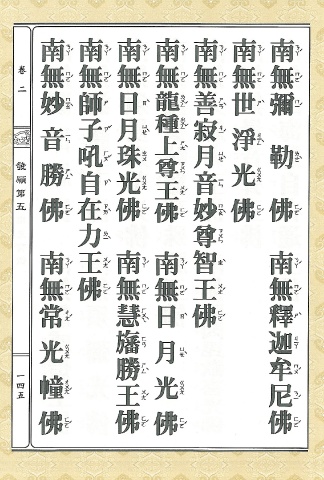 南無彌勒佛 南無釋迦牟尼佛
南無世淨光佛
南無善寂月音妙尊智王佛
南無龍種上尊王佛 南無日月光佛
南無日月珠光佛 南無慧旛勝王佛
南無師子吼自在力王佛
南無妙音勝佛 南無常光幢佛
卷二 發願第五 一四五